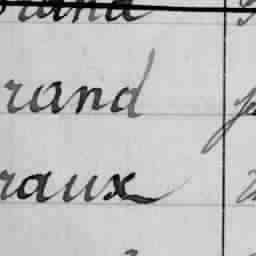 rand
rand
raux